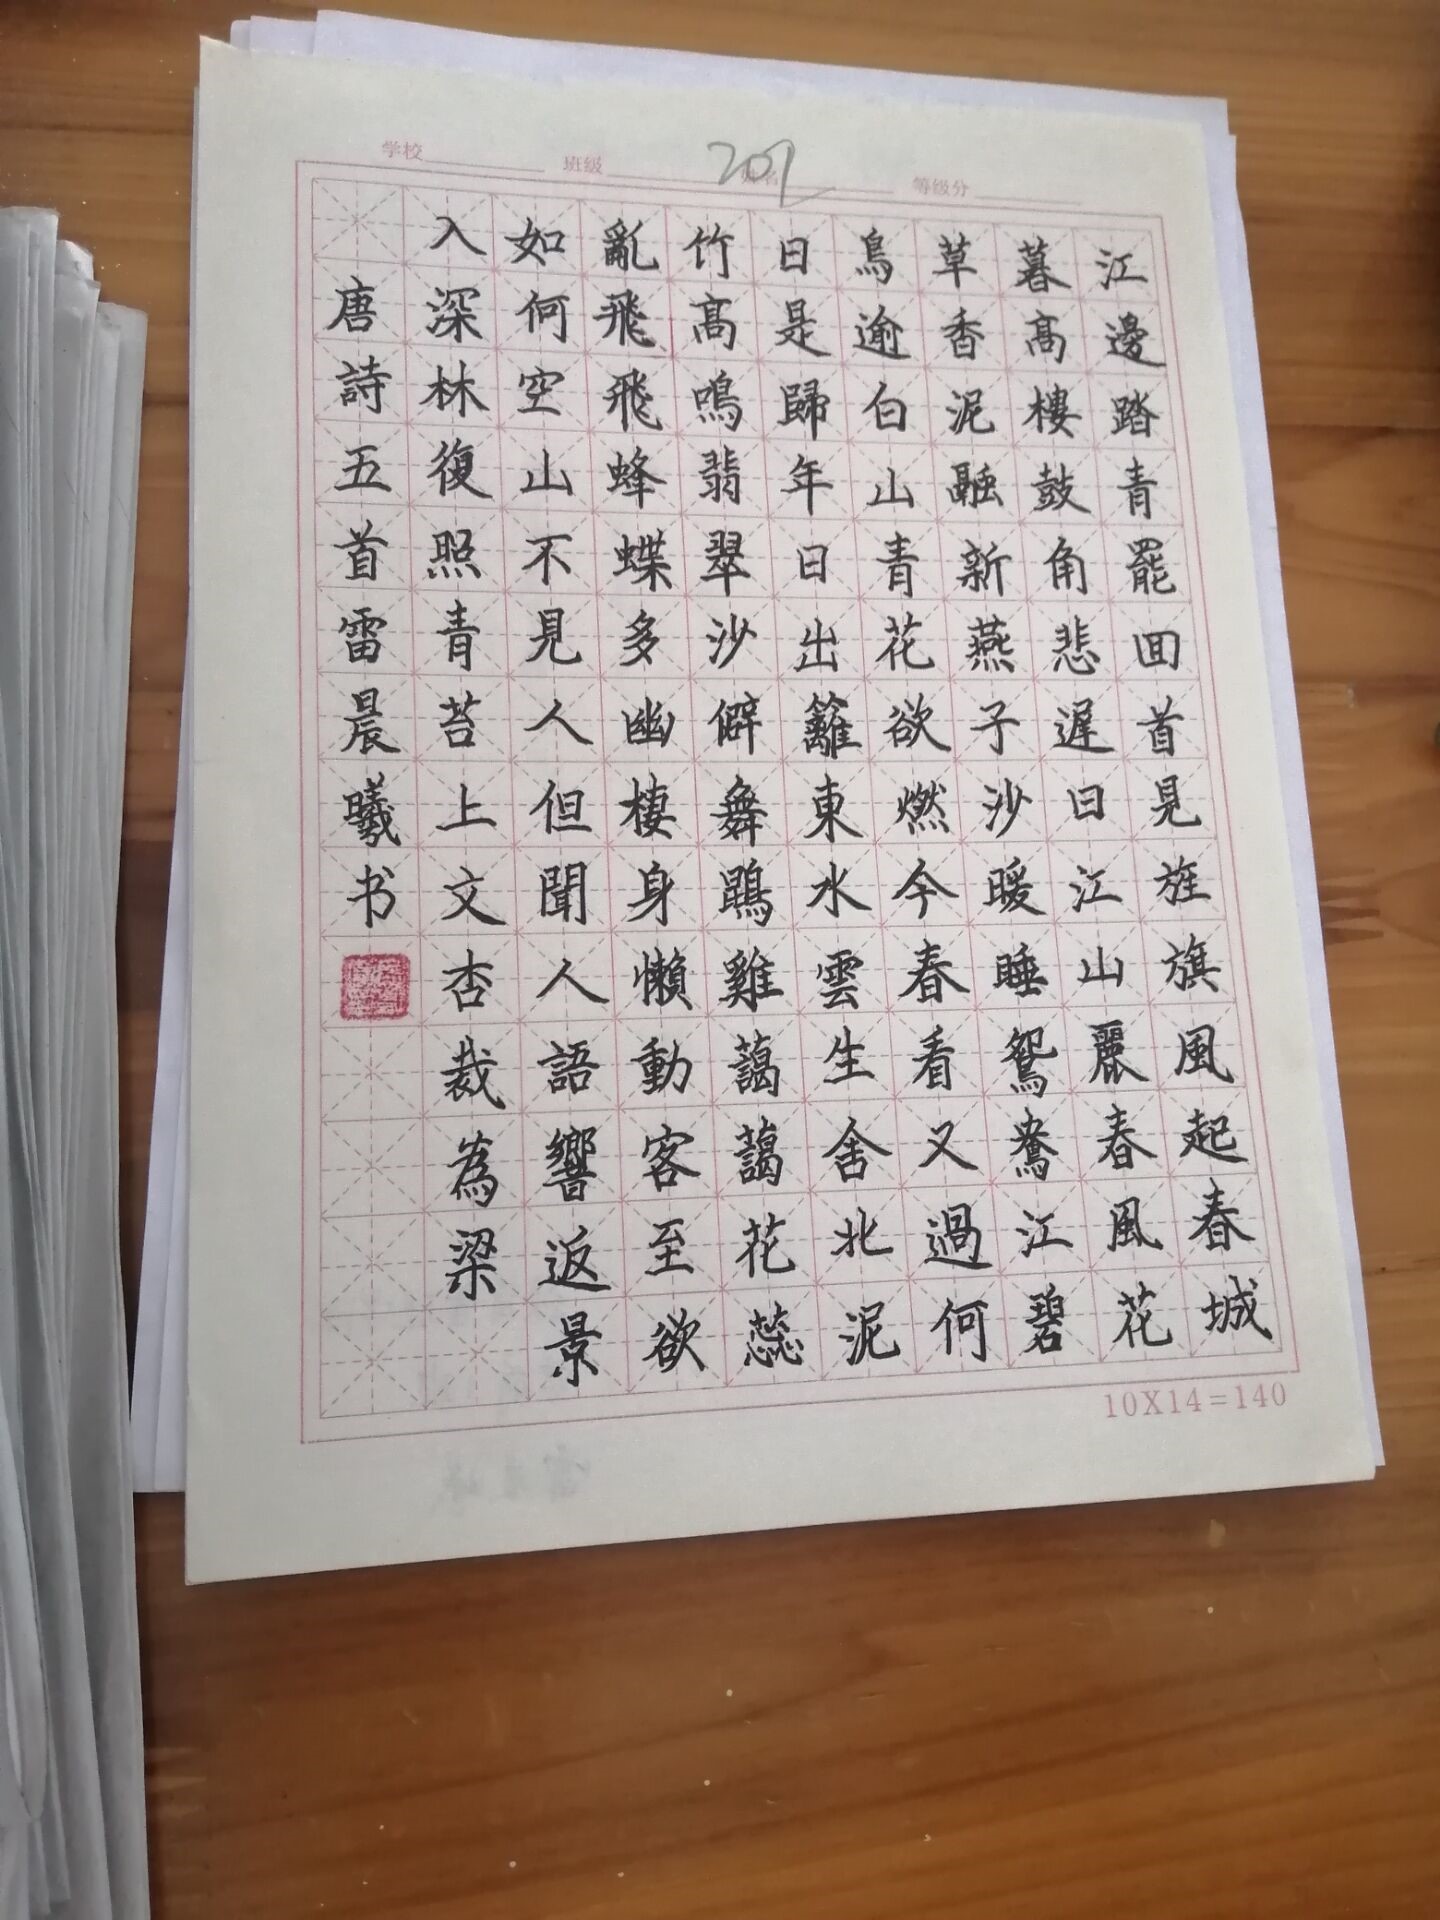 学校 班级 等级分
201
江邊踏青罷回首見旌旗風起春城
暮高樓鼓角悲遲日江山麗春風花
草香泥融新燕子沙暖睡鴛鴦江碧
鳥逾白山青花欲燃今春看又過何
日是歸年日出籬東水雲生舍北泥
竹高鳴翡翠沙僻舞鵾雞藹藹花蕊
亂飛飛蜂蝶多幽棲身懶動客至欲
如何空山不見人但聞人語響返景
入深林復照青苔上文杏裁為梁
唐詩五首雷晨曦书
10X14=140